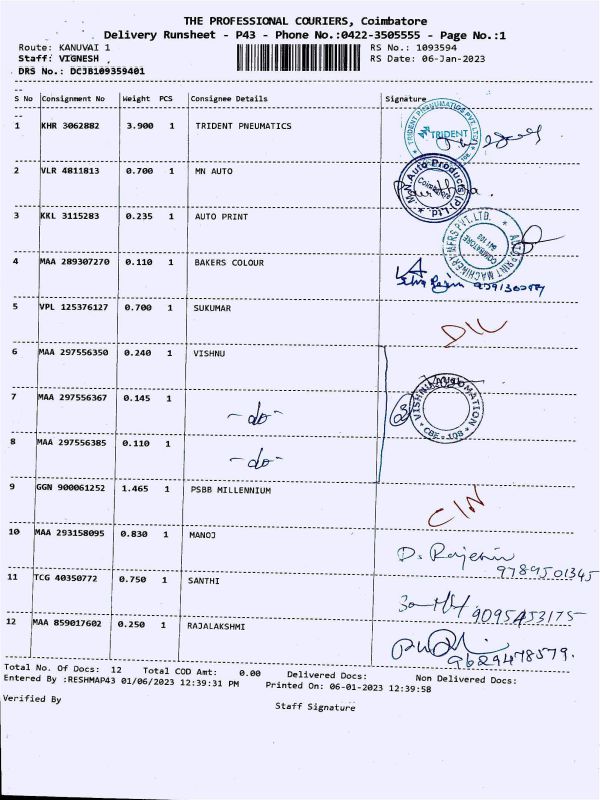 THE PROFESSIONAL COURIERS, Coimbatore
Delivery Runsheet - P43 - Phone No.:0422-3505555 - Page No.:1
Route: KANUVAI 1 RS No.: 1093594
Staff: VIGNESH , RS Date: 06-Jan-2023
DRS No.: DCJB109359401
S No Consignment No Weight PCS Consignee Details Signature
1 KHR 3062882 3.900 1 TRIDENT PNEUMATICS
TRIDENT PNEUMATICS PVT. LTD.
TRIDENT
2 VLR 4811813 0.700 1 MN AUTO
M.N. Auto Products (P) Ltd.
Coimbatore
3 KKL 3115283 0.235 1 AUTO PRINT
AUTOPRINT MACHINERY MFRS PVT. LTD.
COIMBATORE
4 MAA 289307270 0.110 1 BAKERS COLOUR
5 VPL 125376127 0.700 1 SUKUMAR
6 MAA 297556350 0.240 1 VISHNU
VISHNU AUTOMATION
7 MAA 297556367 0.145 1 -do-
8 MAA 297556385 0.110 1 -do-
9 GGN 900061252 1.465 1 PSBB MILLENNIUM
10 MAA 293158095 0.830 1 MANOJ
9789501345
11 TCG 40350772 0.750 1 SANTHI
9095453175
12 MAA 859017602 0.250 1 RAJALAKSHMI
9629478579.
Total No. Of Docs: 12 Total COD Amt: 0.00 Delivered Docs: Non Delivered Docs:
Entered By :RESHMAP43 01/06/2023 12:39:31 PM Printed On: 06-01-2023 12:39:58
Verified By Staff Signature